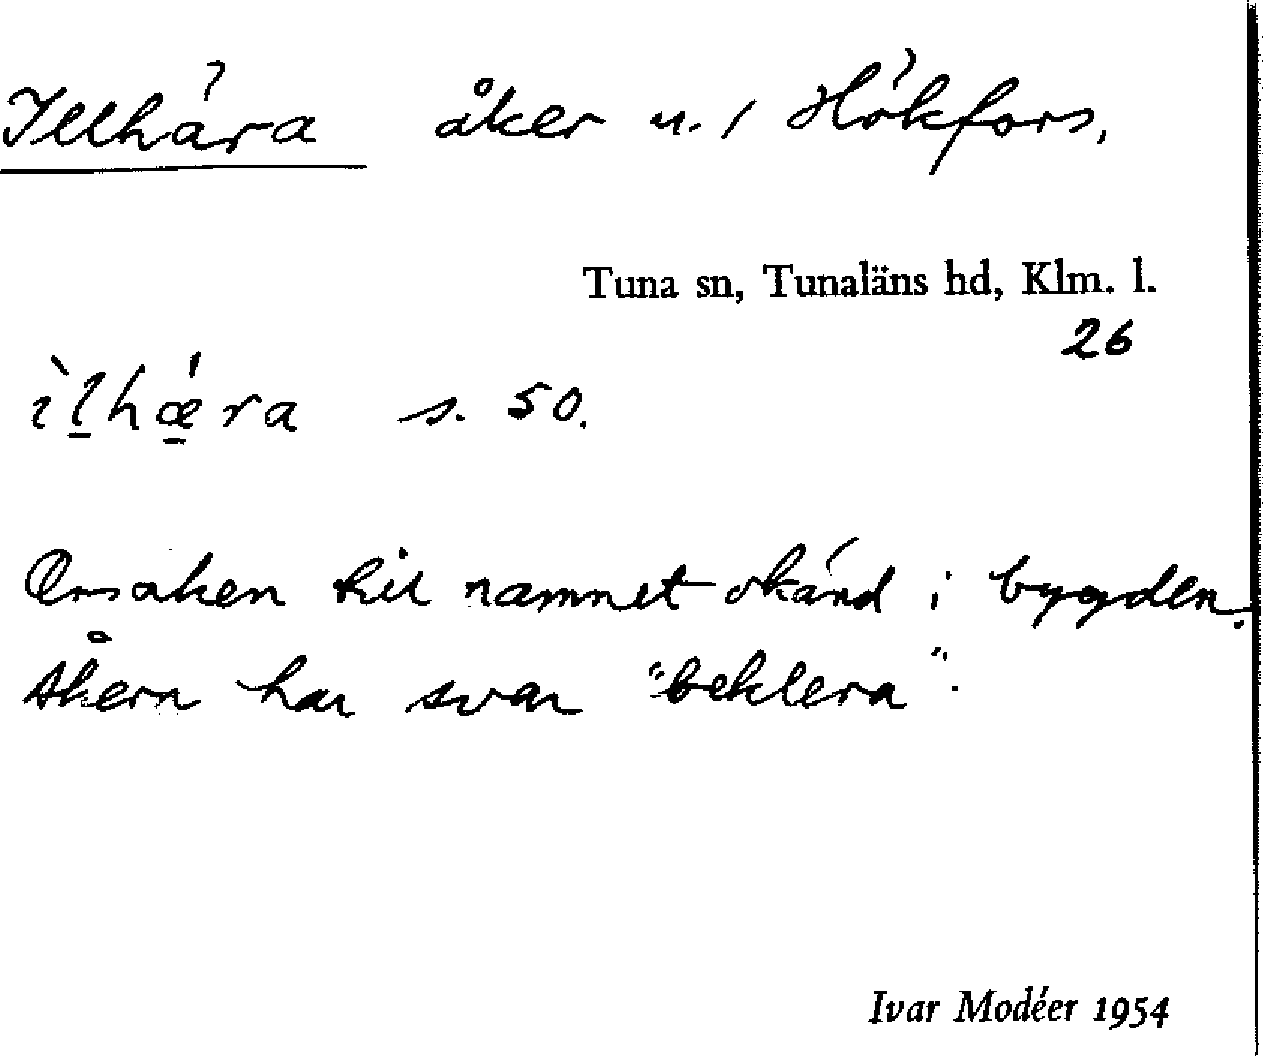 Illhära åker u. / Hökfors.
Tuna sn, Tunaläns hd, Klm. l.
26
ìl̠hǽ̠ra s. 50.
Orsaken till namnet okänd i bygden.
Åkern har svar "beklera".
Ivar Modéer 1954